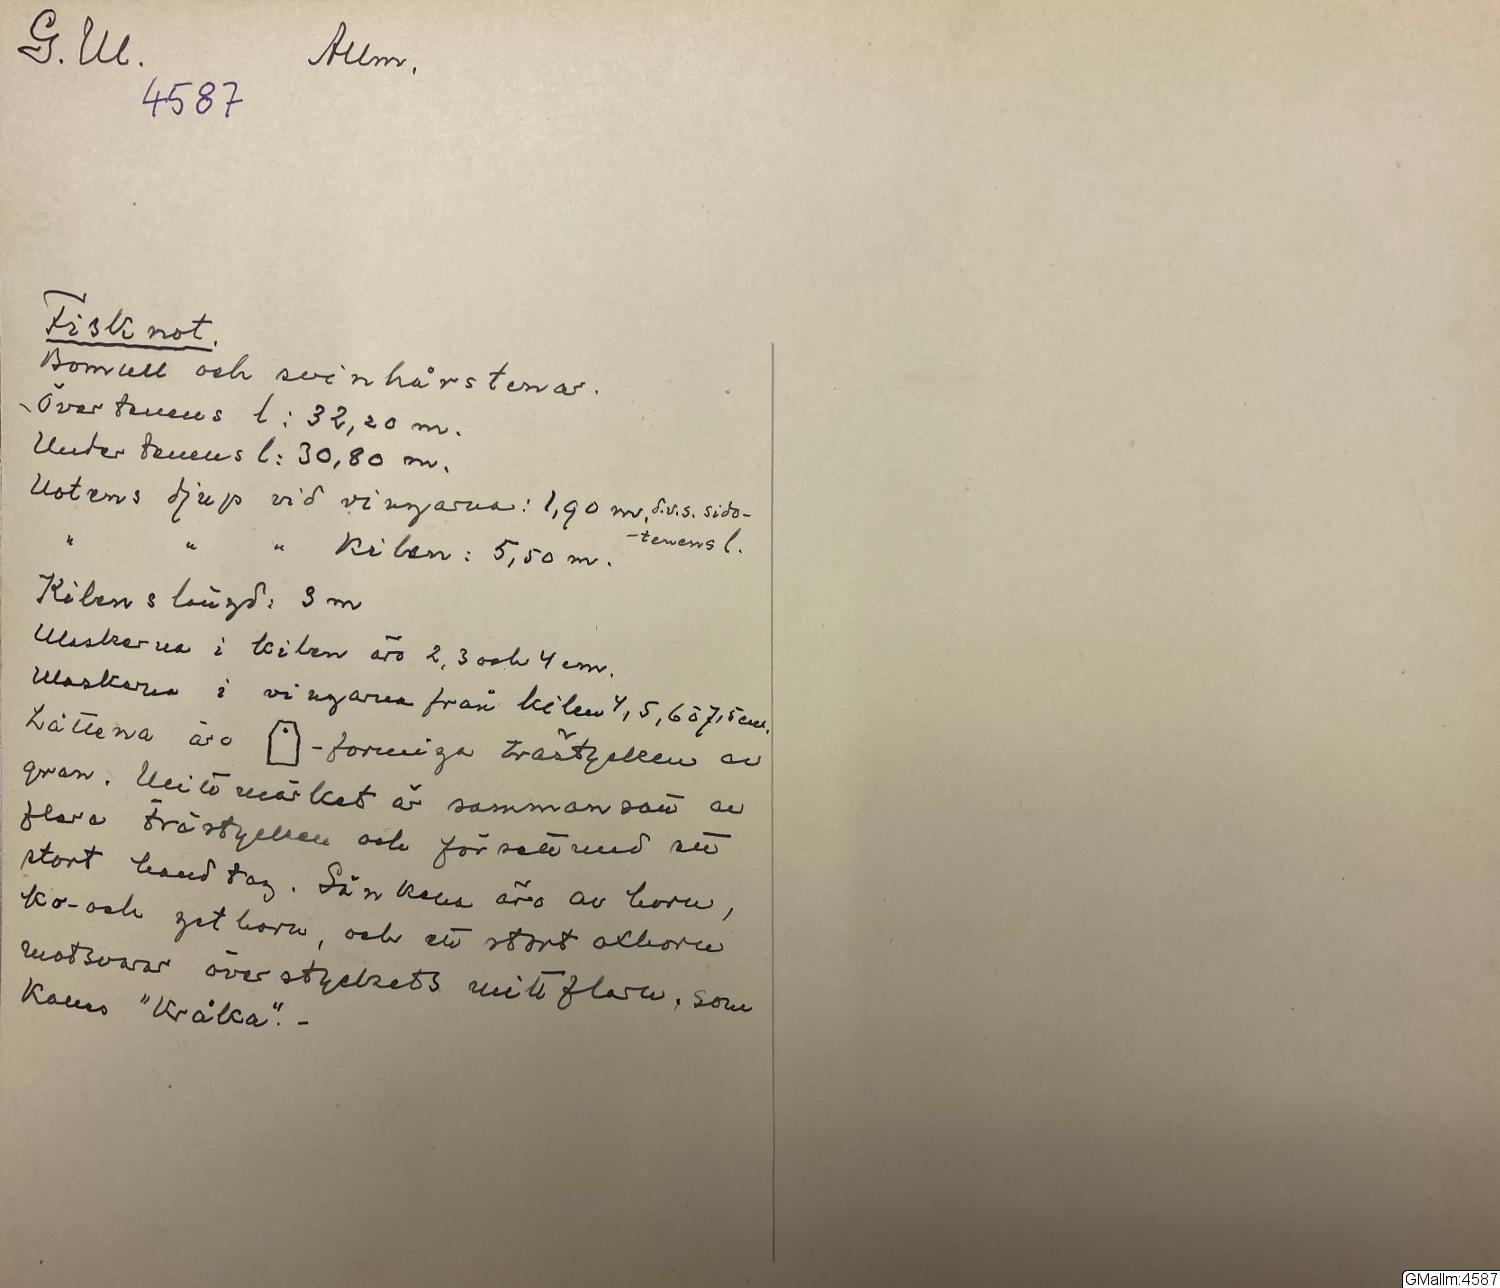 G. M. Allm.
4587
Fisknot.
Bomull och svinhårstenar.
Övertenens l: 32,20 m.
Undertenens l: 30,80 m.
Notens djup vid vingarna: 1,90 m, d.v.s. sido-
-tenens l.
" " " Kilen: 5,50 m.
Kilens längd: 3 m
Maskerna i kilen äro 2, 3 och 4 cm.
Maskerna i vingarna från kilen 4, 5, 6 o 7,5 cm.
Lättena äro -formiga trästycken av
gran. Mittmärket är sammansatt av
flera trästycken och försett med ett
stort handtag. Sänkena äro av horn,
ko- och gethorn, och ett stort oxhorn
motsvarar överstyckets mittflarn, som
kallas "Kråka". -
GMallm:4587